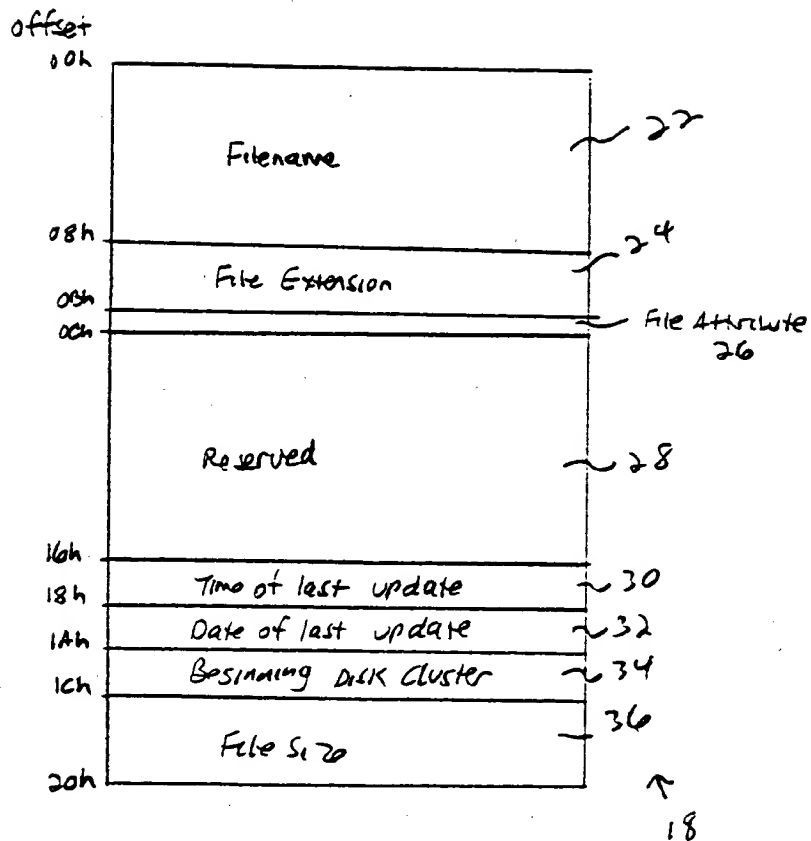 offset
00h
Filename
22
08h
24
File Extension
0Bh
File Attribute
0Ch
26
Reserved
28
16h
Time of last update
30
18h
Date of last update
32
1Ah
Beginning Disk Cluster
34
1Ch
36
File Size
20h
18